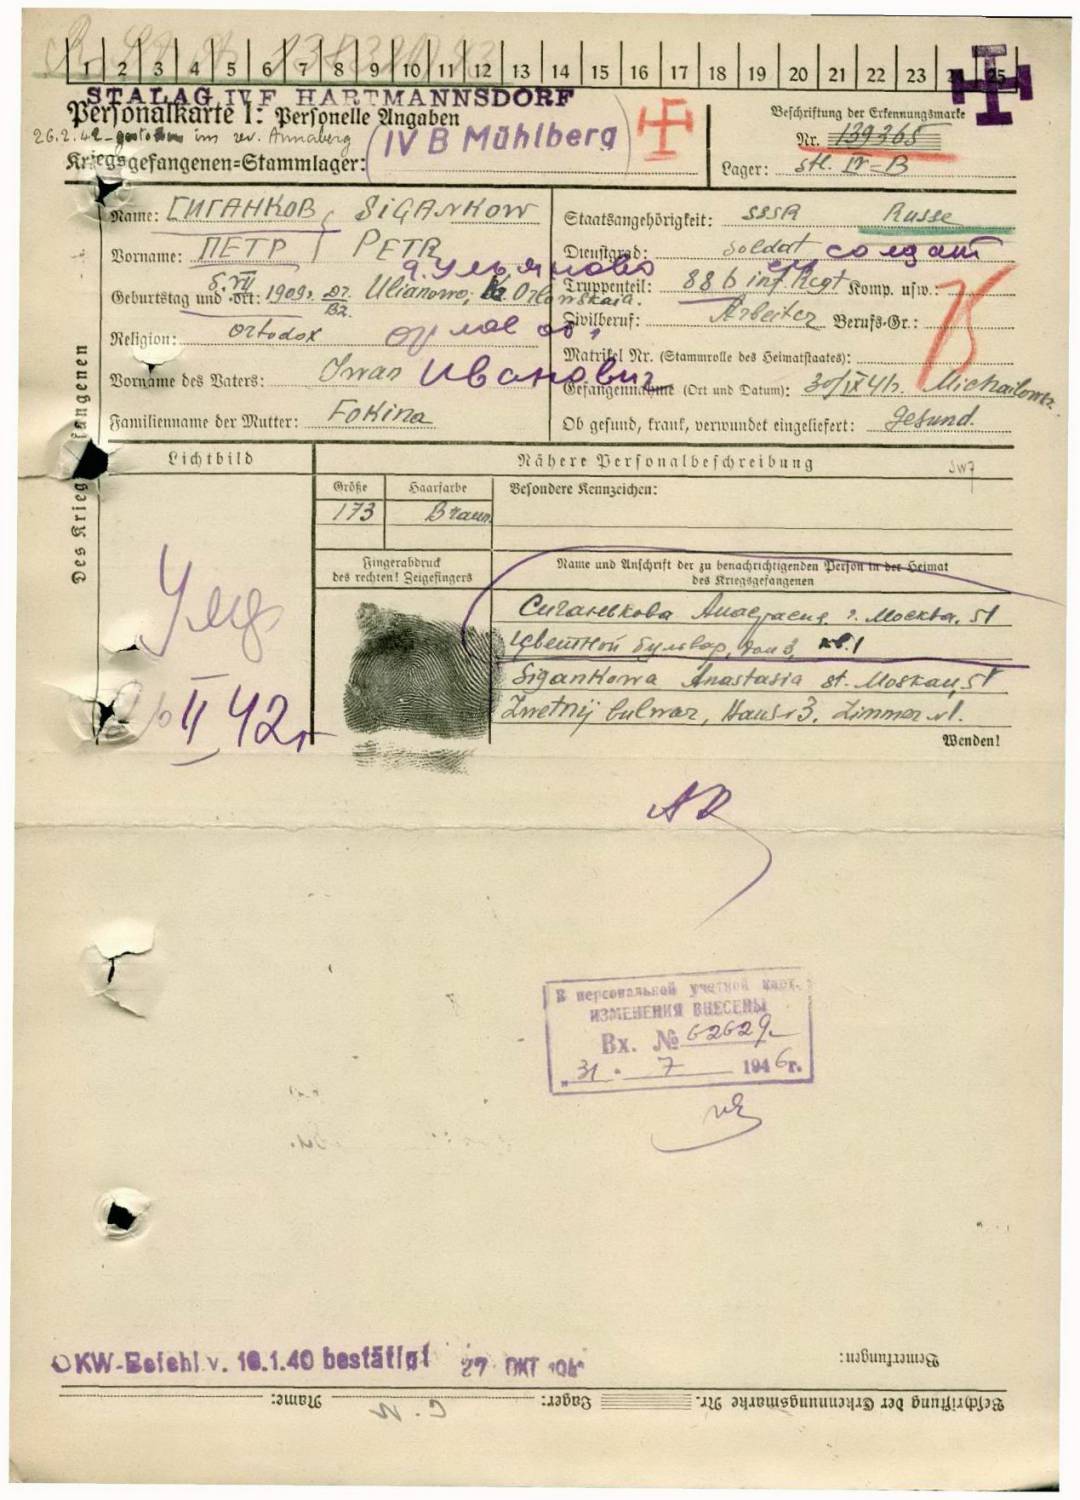 1 2 3 4 5 6 7 8 9 10 11 12 13 14 15 16 17 18 19 20 21 22 23 24 25
STALAG IV F HARTMANNSDORF
Personalkarte I: Personelle Angaben
Beschriftung der Erkennungsmarke
26.2.42 gestorben im Rev. Annaberg
Nr. 139365
Kriegsgefangenen=Stammlager: IV B Mühlberg
Lager: Stl. IV-B
Des Kriegsgefangenen
Name: СИГАНКОВ, SIGANKOW
Staatsangehörigkeit: SSSR Russe
Vorname: ПЕТР PETR
Dienstgrad: Soldat солдат
д. Ульяново
Geburtstag und =ort: 5.VII 1909. Ulianowo, Orlowskaia.
Truppenteil: 886 inf. Regt Komp. usw.:
Орлов об,
Zivilberuf: Arbeiter Berufs-Gr.:
Religion: Ortodox
Matrikel Nr. (Stammrolle des Heimatstaates):
Vorname des Vaters: Iwan Иванович
Gefangennahme (Ort und Datum): 30/IX 41 Michailowka
Familienname der Mutter: Fokina
Ob gesund, krank, verwundet eingeliefert: Gesund.
Lichtbild
Nähere Personalbeschreibung
Größe Haarfarbe
Besondere Kennzeichen:
173 Braun
Fingerabdruck
des rechten! Zeigefingers
Name und Anschrift der zu benachrichtigenden Person in der Heimat
des Kriegsgefangenen
Сиганькова Анастасия г. Москва, 51
Цветной бульвар, дом 3, кв. 1
Sigankowa Anastasia st. Moskau, 51
Zwetnij bulwar, Haus 3, Zimmer 1.
26 II 42г
Wenden!
В персональной учетной карт.
ИЗМЕНЕНИЯ ВНЕСЕНЫ
Вх. № 62629
„31. 7 1946г.
OKW-Befehl v. 16.1.40 bestätigt 27 OKT
Bemerkungen:
Beschriftung der Erkennungsmarke Nr. Lager: Name: